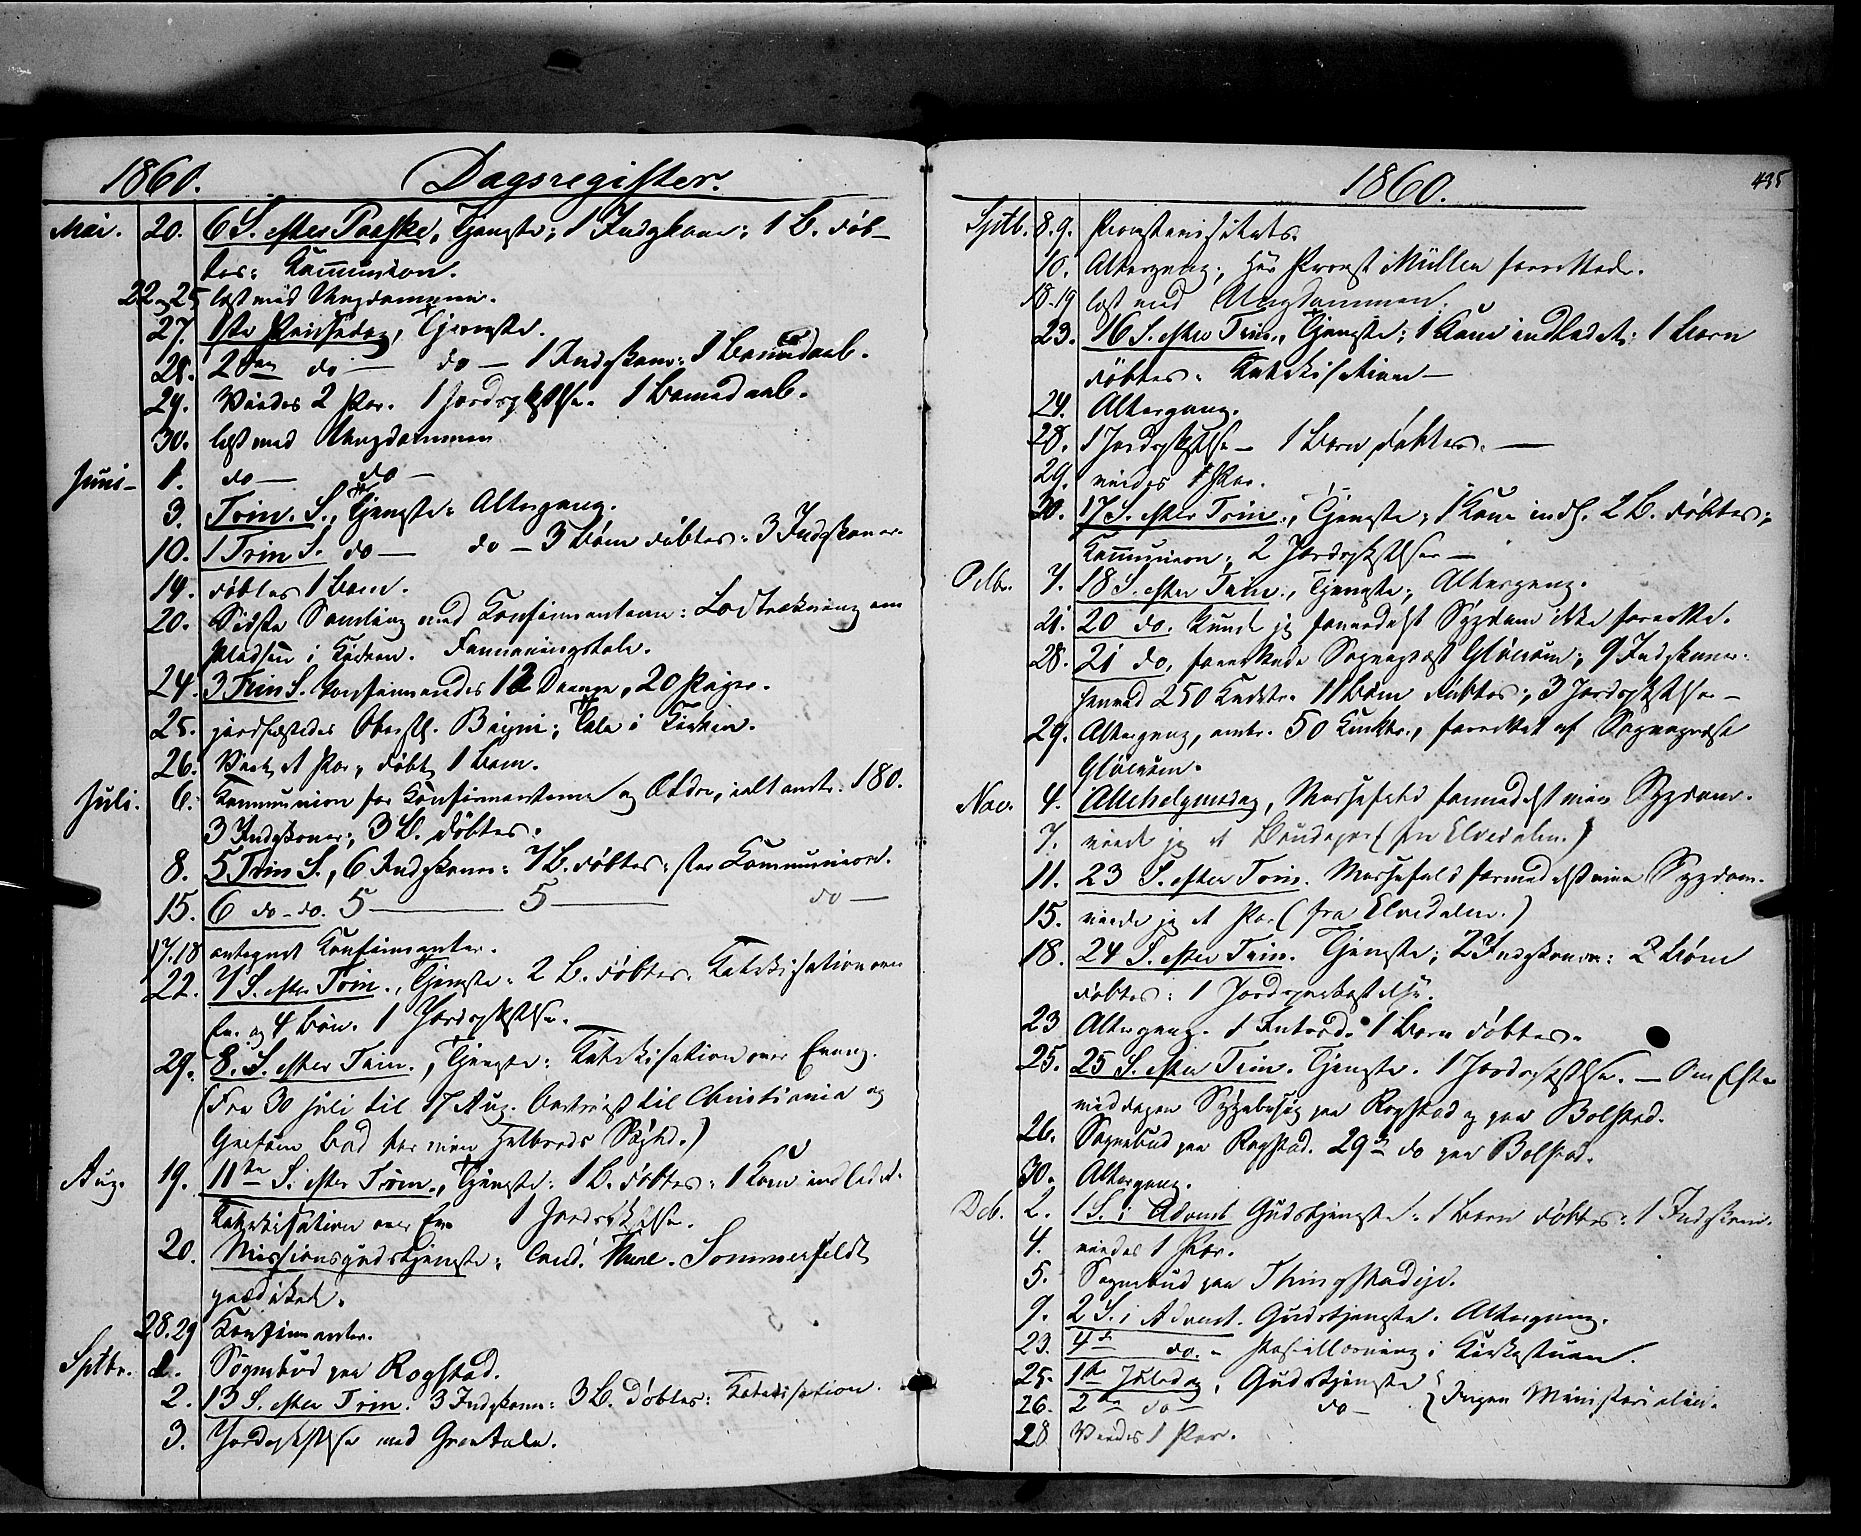 1860. Dagsregister.
Mai. 20. 6 S. efter Paaske, Tjeneste; 1 Indgkone; 1 B. døb-
tes; Kommunion.
22 og 25 læst med Ungdommen.
27. 1ste Pintsedag, Tjeneste.
28. 2den do — do — 1 Indgkone; 1 Barnedaab.
29. Viedes 2 Par. 1 Jordpkstelse. 1 Barnedaab.
30. læst med Ungdommen
Juni 1. do — do —
3. Trin. S., Tjeneste; Altergang.
10. 1 Trin S. do — do — 3 Børn døbtes; 3 Indgkoner.
14. døbtes 1 Barn.
20. Sidste Samling med Konfirmanterne: Lodtrækning om
Pladsen i Kirken. Formaningstale.
24. 3 Trin S. Konfirmeredes 12 Drenge, 20 Piger.
25. jordfæstedes Oberstl. Tale i Kirken.
26. Viet et Par, døbt 1 Barn.
Juli. 6. Kommunion for Konfirmanterne og Ældre, ialt omtr. 180.
3 Indgkoner; 3 B. døbtes.
8. 5 Trin S., 6 Indgkoner: 7 B. døbtes; stor Kommunion.
15. 6 do-do. 5 — 5 — do —
17.18 antegnet Konfirmanter.
22. 7 S. efter Trin., Tjeneste: 2 B. døbtes. Katekisation over
Ev. og 4 Bøn. 1 Jordpkstelse.
29. 8. S. efter Trin., Tjeneste: Katekisation over Evang.
(Fra 30 Juli til 17 Aug. bortreist til Christiania og
Grefsen Bad for min Helbreds Skyld.)
Aug. 19. 11te S. efter Trin., Tjeneste; 1 B. døbtes; 1 Kone indledet.
Katekisation over Ev. 1 Jordpkstelse.
20. Missionsgudstjeneste; Cand. Sommerfeldt
prædikede.
28.29 Konfirmanter.
Sptbr. 1. Sognebud paa Rogstad.
2. 13 S. efter Trin. 3 Indgkoner: 3 B. døbtes: Katekisation.
3. Jordpkstelse med Gravtale.
1860. 435
Sptb. 8.9. Provstevisitats.
10. Altergang; Hr Provst Müller forrettede.
18-19 læst med Ungdommen.
23. 16 S. efter Trin., Tjeneste; 1 Kone indledet; 1 Barn
døbtes; Katekisation —
24. Altergang.
28. 1 Jordpkstelse — 1 Barn døbtes. —
29. viedes 1 Par.
30. 17 S. efter Trin., Tjeneste; 1 Kone indl. 2 B. døbtes;
Kommunion; 2 Jordpkstelser —
Octbr. 7. 18 S. efter Trin., Tjeneste; Altergang.
21. 20 do. kunde jeg formedelst Sygdom ikke forrette.
28. 21 do, forrettede Sognepræst Glørsom; 9 Indgkoner;
henved 250 11 Børn døbtes; 3 Jordpkstelser —
29. Altergang, omtr. 50 forrettet af Sognepræst
Glørsom.
Nov. 4. Allehelgensdag, Messefald formedelst min Sygdom.
7. viede jeg et Brudepar (fra Elvedalen.)
11. 23 S. efter Trin. Messefald formedelst min Sygdom.
15. viede jeg et Par (fra Elvedalen.)
18. 24 S. efter Trin. Tjeneste; 2 Indgkoner: 2 Børn
døbtes: 1 Jordpaakastelse.
23 Altergang. 1 Introd. 1 Barn døbtes.
25. 25 S. efter Trin. Tjeneste. 1 Jordpkstelse. — Om Efter
middagen Sygebesøg paa Rogstad og paa Bolstad.
26. Sognebud paa Rogstad. 29de do paa Bolstad.
30. Altergang.
Dcb. 2. 1 S. i Advent Gudstjeneste; 1 Barn døbtes; 1 Indgkone.
4. viedes 1 Par.
5. Sognebud paa
9. 2 S. i Advent. Gudstjeneste. Altergang.
23. 4de do. — Postillæsning i Kirkestuen.
25. 1ste Juledag, Gudstjeneste } Ingen Ministerialier.
26. 2den do — do —
28 Viedes 1 Par.